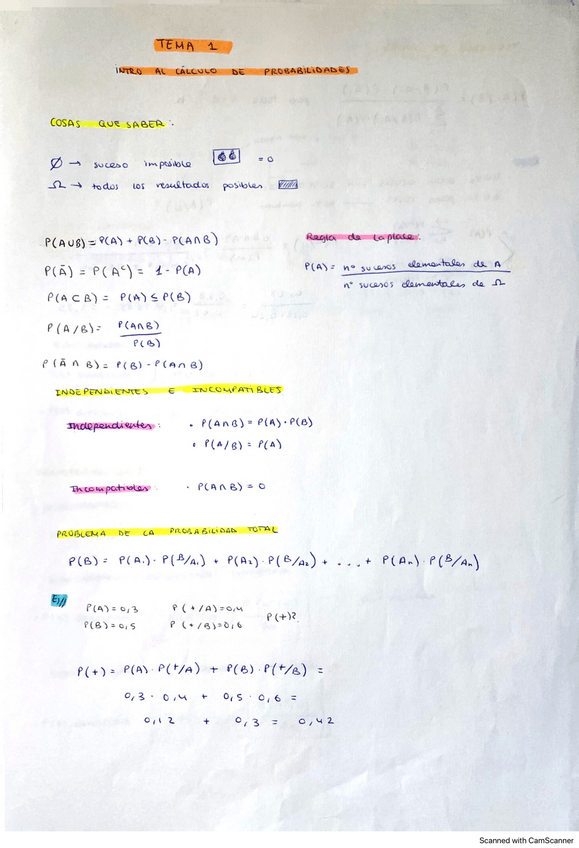 TEMA 1
INTRO AL CÁLCULO DE PROBABILIDADES
COSAS QUE SABER:
∅ → suceso imposible = 0
Ω → todos los resultados posibles
P(A∪B) = P(A) + P(B) - P(A∩B)
P(Ā) = P(Aᶜ) = 1 - P(A)
P(A ⊂ B) = P(A) ≤ P(B)
P(A/B) = P(A∩B) / P(B)
P(Ā ∩ B) = P(B) - P(A∩B)
Regla de Laplace:
P(A) = nº sucesos elementales de A / nº sucesos elementales de Ω
INDEPENDIENTES E INCOMPATIBLES
Independientes: • P(A∩B) = P(A) · P(B)
• P(A/B) = P(A)
Incompatibles • P(A∩B) = 0
PROBLEMA DE LA PROBABILIDAD TOTAL
P(B) = P(A₁) · P(B/A₁) + P(A₂) · P(B/A₂) + ... + P(Aₙ) · P(B/Aₙ)
Ej//
P(A) = 0,3 P(+/A) = 0,4
P(B) = 0,5 P(+/B) = 0,6 P(+)?
P(+) = P(A) · P(+/A) + P(B) · P(+/B) =
0,3 · 0,4 + 0,5 · 0,6 =
0,12 + 0,3 = 0,42
Scanned with CamScanner